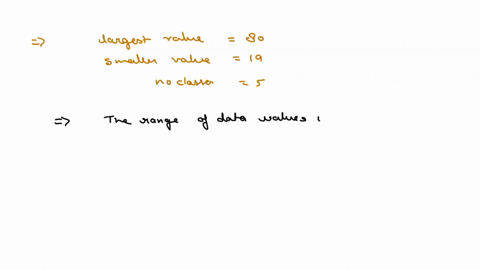 ⇒ largest value = 80
smaller value = 19
no classa = 5
⇒ The range of data values i